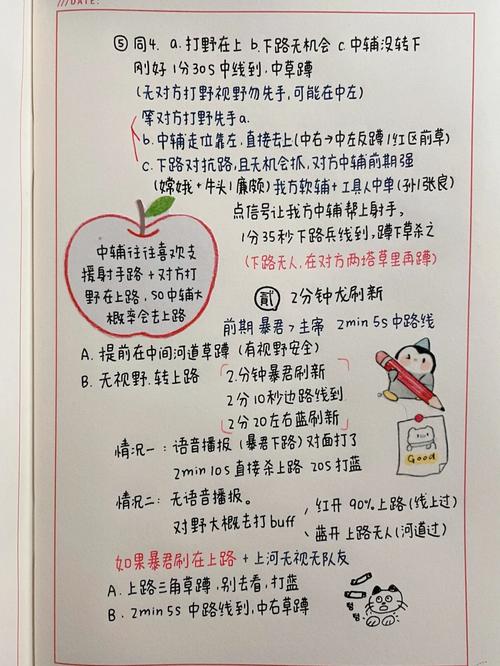 ///DATE:
⑤ 同4. a.打野在上 b.下路无机会 c.中辅没转下
刚好1分30S中线到.中草蹲
(无对方打野视野勿先手,可能在中左)
等对方打野先手a.
b.中辅走位靠左,直接去上(中右→中左反蹲/红区前草)
c.下路对抗路,且无机会抓,对方中辅前期强
(嫦娥+牛头/廉颇)我方软辅+工具人中单(孙/张良)
点信号让我方中辅帮上射手,
1分35秒下路兵线到,蹲下草杀之
(下路无人,在对方两塔草里再蹲)
中辅往往喜欢支
援射手路+对方打
野在上路,SO中辅大
概率会去上路
贰 2分钟龙刷新
前期 暴君>主席 2min 5s中路线
A.提前在中间河道草蹲(有视野安全)
B.无视野.转上路
2分钟暴君刷新
2分10秒边路线到
2分20左右蓝刷新
Good
情况一:语音播报(暴君下路)对面打了
2min 10s 直接杀上路 20S打蓝
情况二:无语音播报。
对野大概去打buff
红开 90%上路(线上过)
蓝开 上路无人(河道过)
如果暴君刷在上路+上河无视无队友
A.上路三角草蹲,别去看,打蓝
B.2min 5s 中路线到,中右草蹲